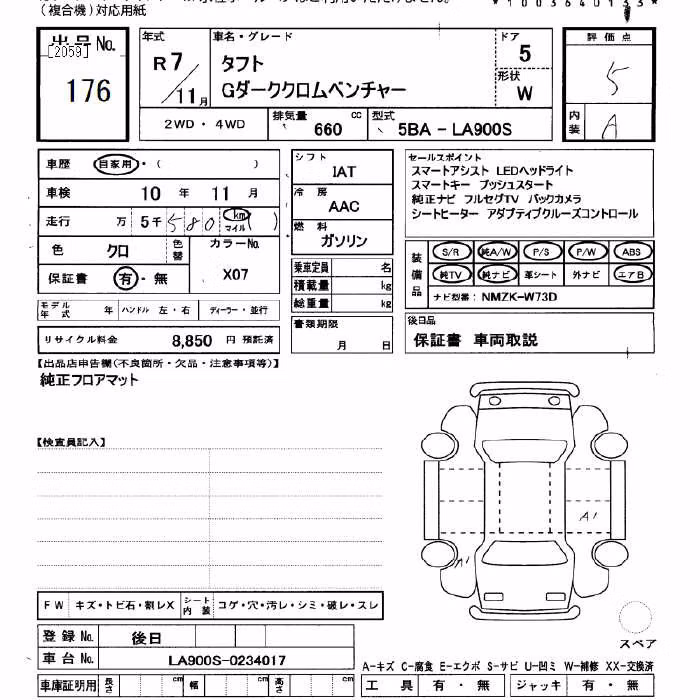 (複合機)対応用紙
出品No. [2059] 176
年式 R7/11月
車名・グレード タフト Gダーククロムベンチャー
ドア 5
形状 W
評価点 5
内装 A
2WD・4WD
排気量 660 cc
型式 5BA-LA900S
車歴 自家用・( )
車検 10年 11月
走行 万 5千 580 km マイル ( )
色 クロ 色替 カラーNo. X07
保証書 有・無
モデル年式 年 ハンドル 左・右 ディーラー・並行
リサイクル料金 8,850 円 預託済
シフト IAT
冷房 AAC
燃料 ガソリン
乗車定員 名
積載量 kg
総重量 kg
書類期限 月 日
セールスポイント
スマートアシスト LEDヘッドライト
スマートキー プッシュスタート
純正ナビ フルセグTV バックカメラ
シートヒーター アダプティブクルーズコントロール
装備品 S/R 純A/W P/S P/W ABS
純TV 純ナビ 革シート 外ナビ エアB
ナビ型番: NMZK-W73D
後日品
保証書 車両取説
【出品店申告欄(不良箇所・欠品・注意事項等)】
純正フロアマット
【検査員記入】
A1
A1
FW キズ・トビ石・割レX シート内装 コゲ・穴・汚レ・シミ・破レ・スレ
スペア
登録No. 後日
車台No. LA900S-0234017
A-キズ C-腐食 E-エクボ S-サビ U-凹ミ W-補修 XX-交換済
車庫証明用 長さ cm 幅 cm 高さ cm
工具 有・無 ジャッキ 有・無